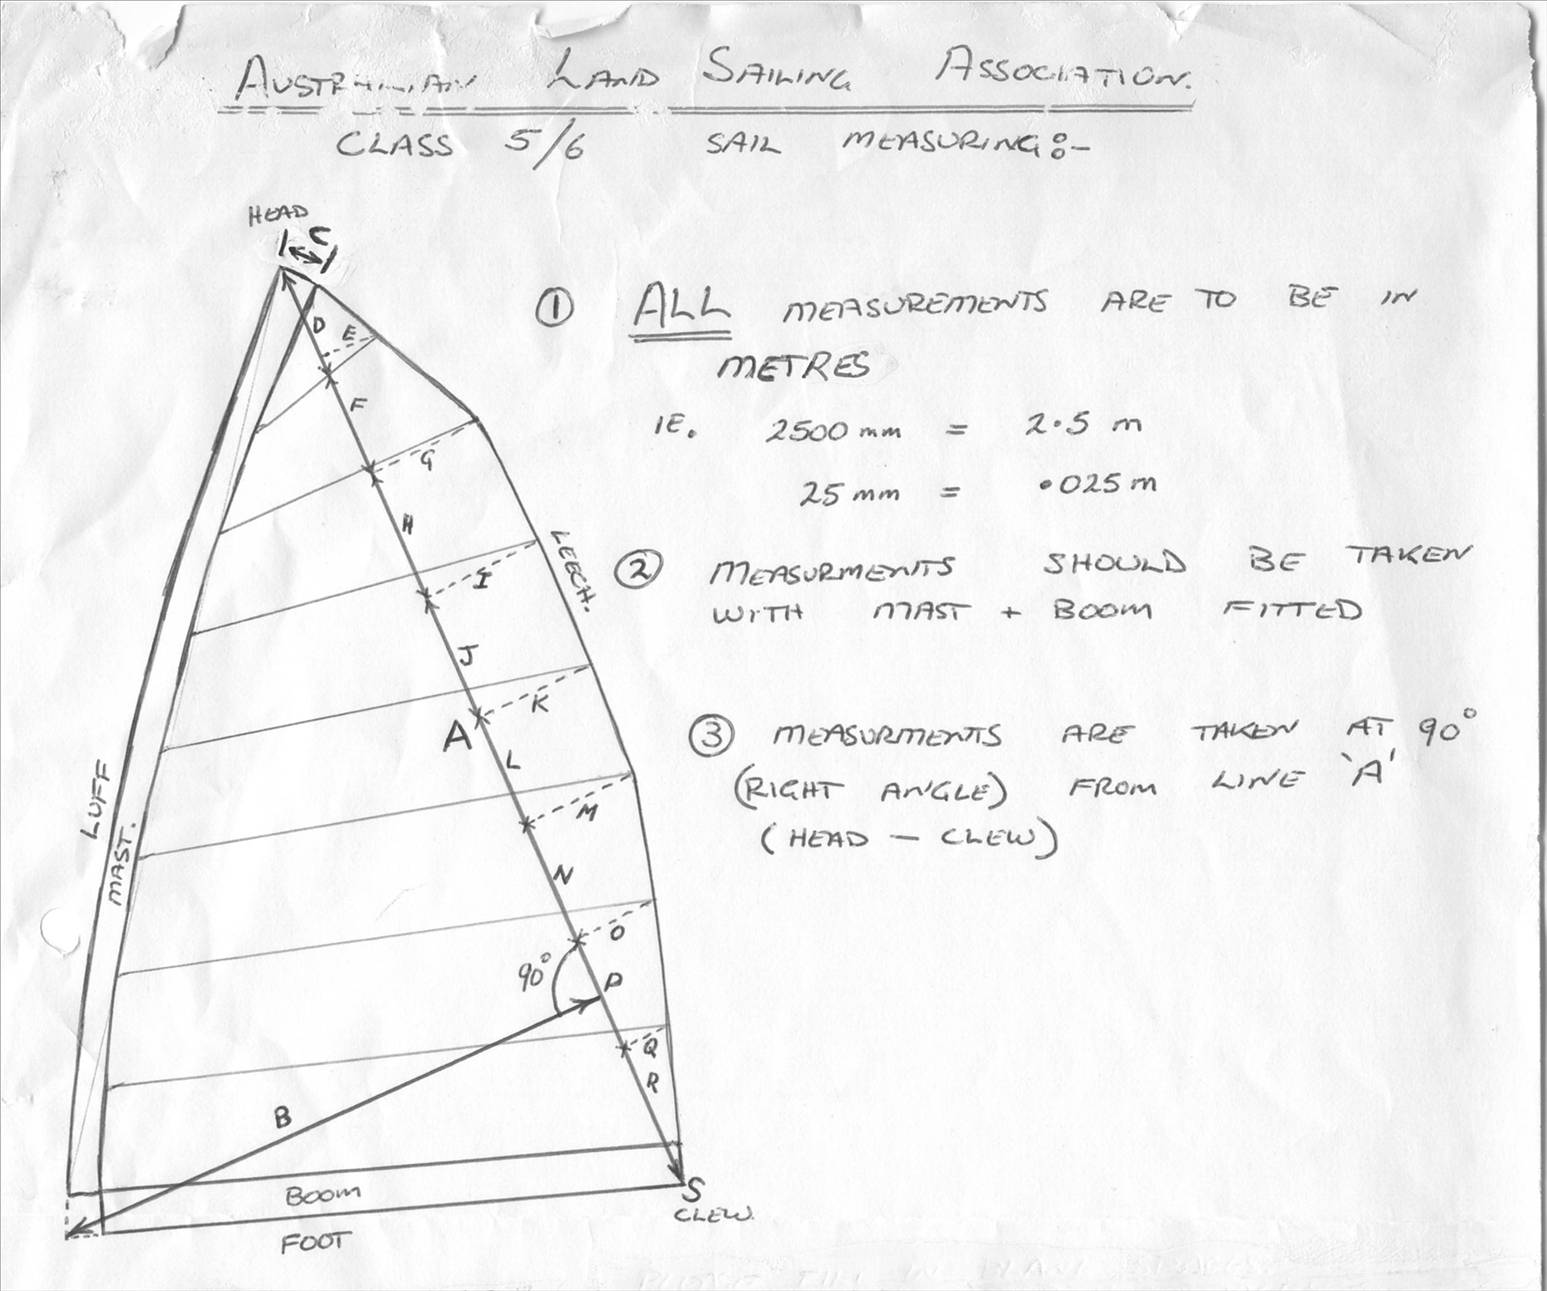 AUSTRALIAN LAND SAILING ASSOCIATION.
CLASS 5/6 SAIL MEASURING:-
HEAD
C
D
E
F
G
H
I
J
K
A
L
M
N
O
90°
P
Q
R
B
S
LEECH.
LUFF
MAST.
BOOM
FOOT
CLEW.
① ALL MEASUREMENTS ARE TO BE IN
METRES
IE. 2500 mm = 2.5 m
25 mm = .025 m
② MEASURMENTS SHOULD BE TAKEN
WITH MAST + BOOM FITTED
③ MEASURMENTS ARE TAKEN AT 90°
(RIGHT ANGLE) FROM LINE 'A'
(HEAD – CLEW)